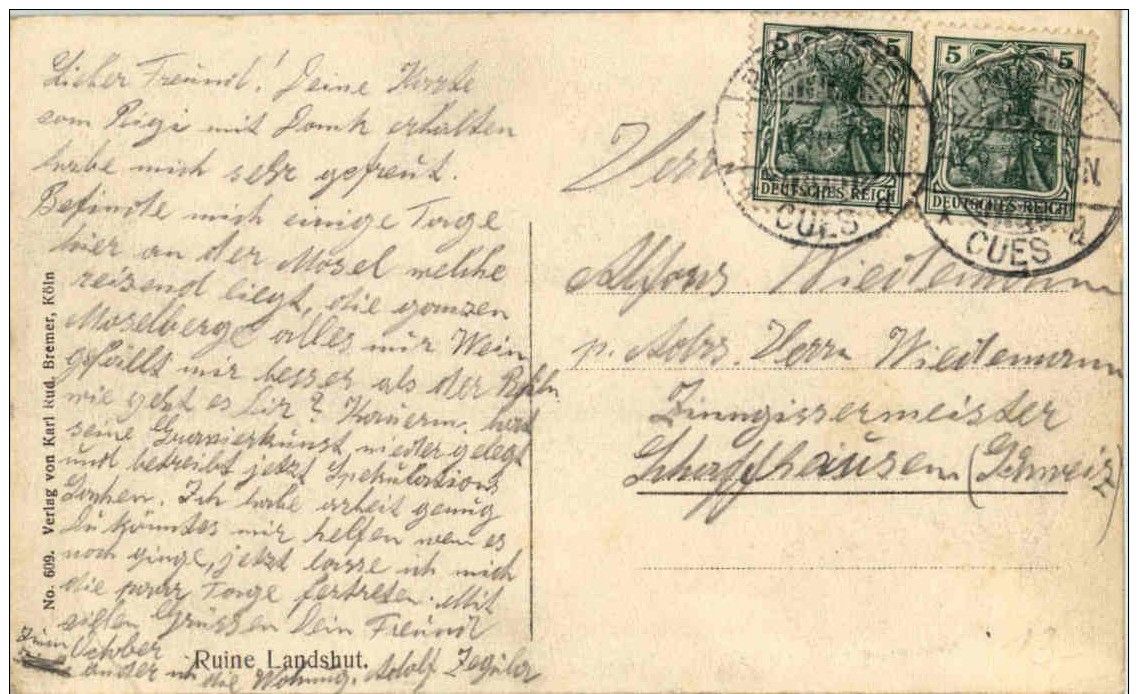 Lieber Freund! Deine Karte
vom Rigi mit Dank erhalten
habe mich sehr gefreut.
Befinde mich einige Tage
hier an der Mosel welche
reizend liegt, die ganzen
Moselberge alles nur Wein
gefällt mir besser als der Rhein
wie geht es Dir? hat
seine niedergelegt
und betreibt jetzt Spekulations
Sachen. Ich habe arbeit genug
Du könntes mir helfen wen es
noch ginge, jetzt lasse ich mich
die paar Tage fertreten. Mit
vielen Grüssen Dein Freund
Zum October
änder ich die Wohnung. Adolf
Ruine Landshut.
No. 609. Verlag von Karl Rud. Bremer, Köln
5 5
DEUTSCHES REICH
5 5
DEUTSCHES REICH
CUES
CUES
Herrn
Alfons Wiedemann
p. Adrs. Herrn Wiedemann
Zinngissermeister
Schaffhausen (Schweiz)